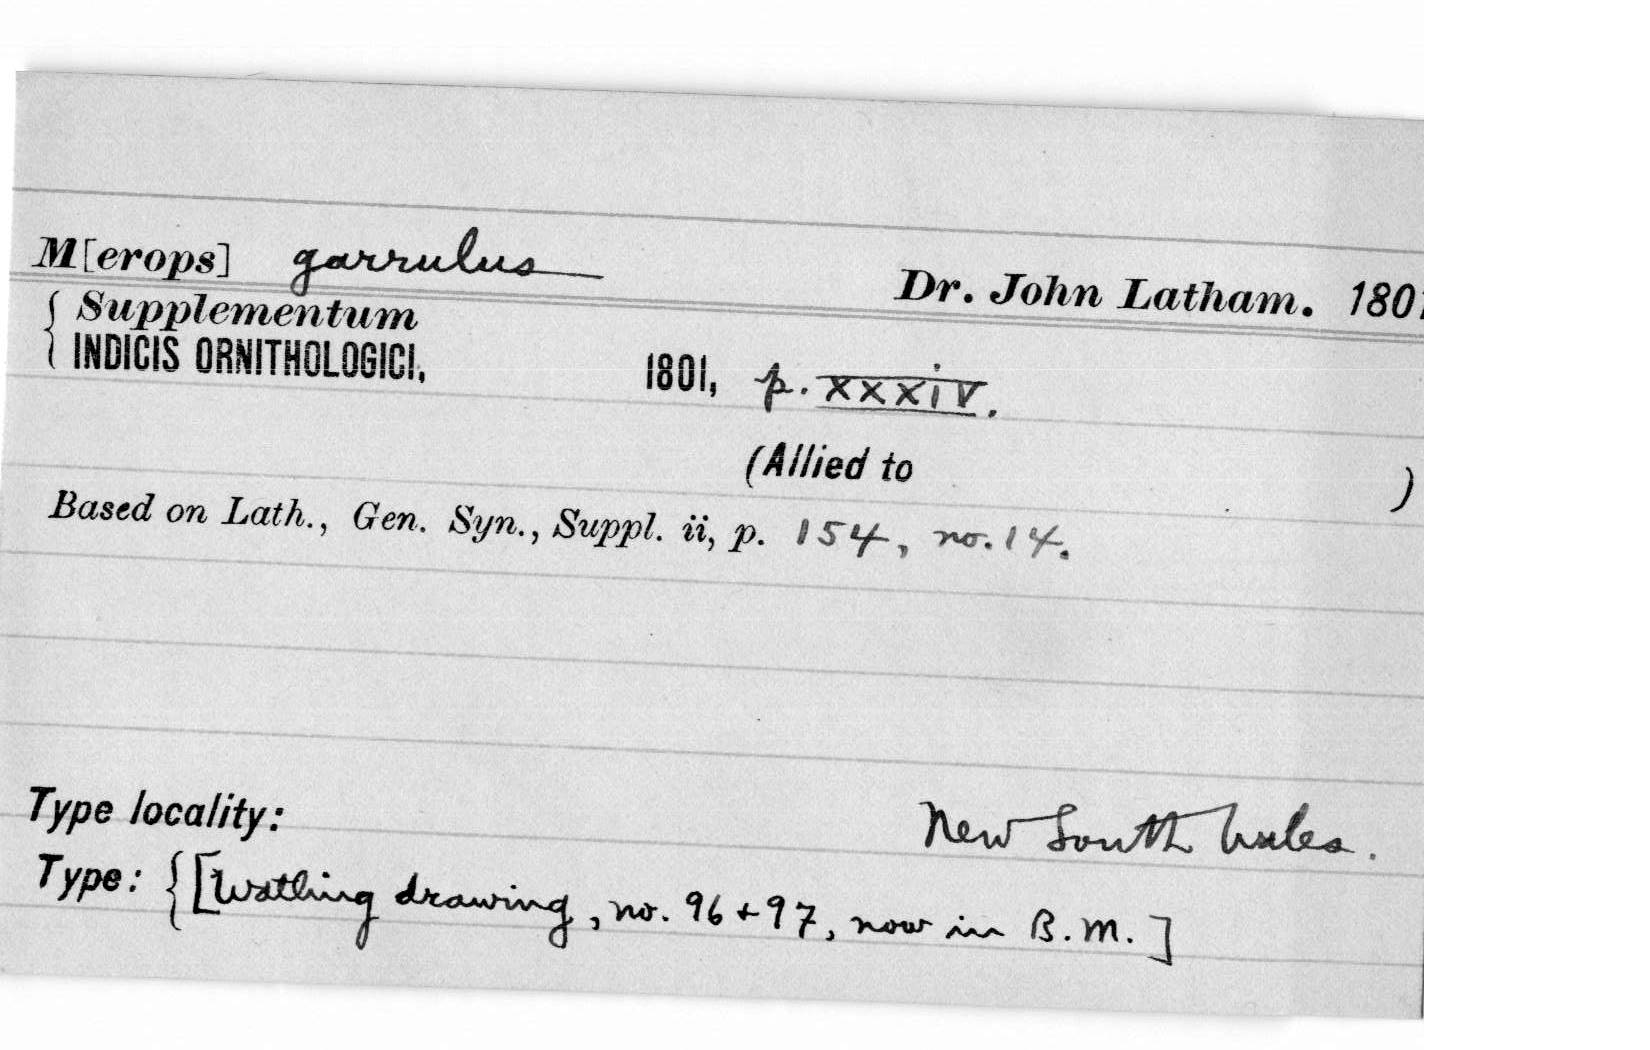 M[erops] garrulus
Dr. John Latham. 1801
{ Supplementum
INDICIS ORNITHOLOGICI, 1801, p. xxxiv.
(Allied to )
Based on Lath., Gen. Syn., Suppl. ii, p. 154, no. 14.
Type locality: New South Wales.
Type: {[Watling drawing, no. 96 + 97, now in B.M.]